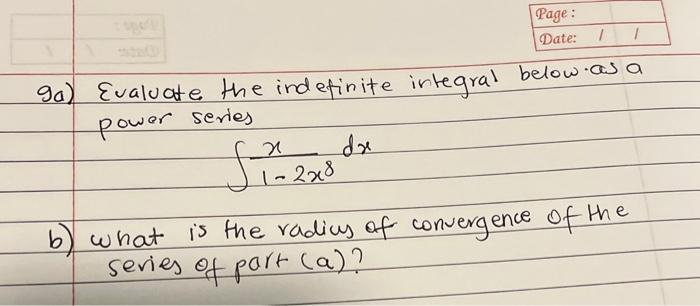 Page:
Date: / /
9a) Evaluate the indefinite integral below as a
power series
∫ x / (1 - 2x^8) dx
b) what is the radius of convergence of the
series of part (a)?